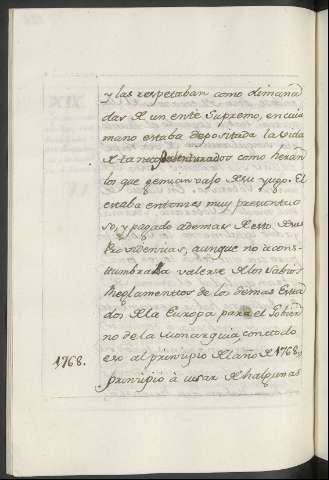 y las respetaban como dimana
das de un ente Supremo, en cuia
mano estaba depositada la vida
de tan desventurados como heran
los que gemian vaso de su yugo. El
estaba entonzes muy presuntuo
so, y pagado ademas de esto de sus
Providencias, aunque no acos
tumbraba valerse de los sabios
Reglamentos de los demas Esta
dos de la Europa para el Gobier
no de la Monarquia, con todo
eso al principio del año de 1768,
1768.
principió à usar de halgunas